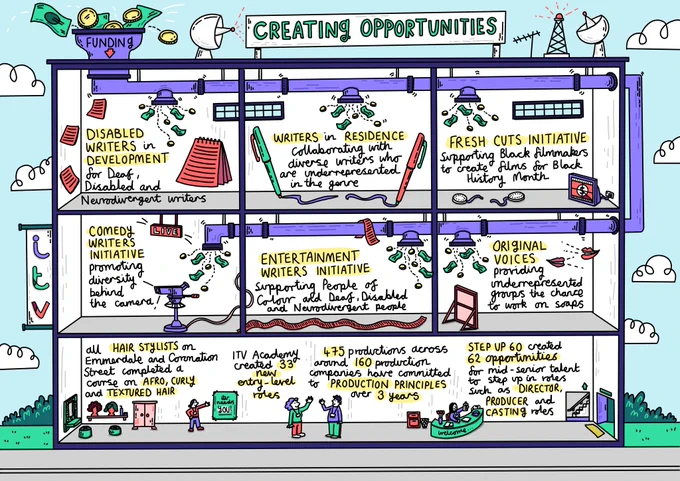 CREATING OPPORTUNITIES
FUNDING
DISABLED
WRITERS in
DEVELOPMENT
for Deaf,
Disabled and
Neurodivergent writers
WRITERS in RESIDENCE
Collaborating with
diverse writers who
are underrepresented
in the genre
FRESH CUTS INITIATIVE
Supporting Black filmmakers
to create films for Black
History Month
itv
COMEDY
WRITERS
INITIATIVE
promoting
diversity
behind
the camera
LIVE
ENTERTAINMENT
WRITERS INITIATIVE
Supporting People of
Colour and Deaf, Disabled
and Neurodivergent people
ORIGINAL
VOICES
providing
underrepresented
groups the chance
to work on soaps
all HAIR STYLISTS on
Emmerdale and Coronation
Street completed a
course on AFRO, CURLY
and TEXTURED HAIR
ITV Academy
created 33
new
entry-level
roles
itv
needs
YOU!
475 productions across
around 160 production
companies have committed
to PRODUCTION PRINCIPLES
over 3 years
STEP UP 60 created
62 opportunities
for mid-senior talent
to step up in roles
such as DIRECTOR,
PRODUCER and
CASTING roles
welcome